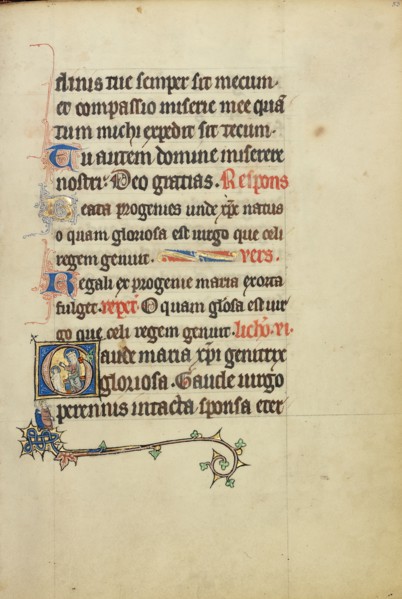 минus tue semper sit mecum.
et compassio miserie mee quā
tum michi expedit sit tecum.
Tu autem domine miserere
nostri. Deo gratias. Respons
Beata progenies unde xp̄c natus
o quam gloriosa est uirgo que celi
regem genuit. vers.
Regali ex progenie maria exorta
fulget. repet̄. O quam gl̄osa est uir
go que celi regem genuit. licho. vi.
Gaude maria xp̄i genitrix
gloriosa. Gaude uirgo
perennis intacta sponsa eter